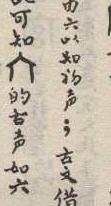 由六以知声；古文借
可知的古声如六